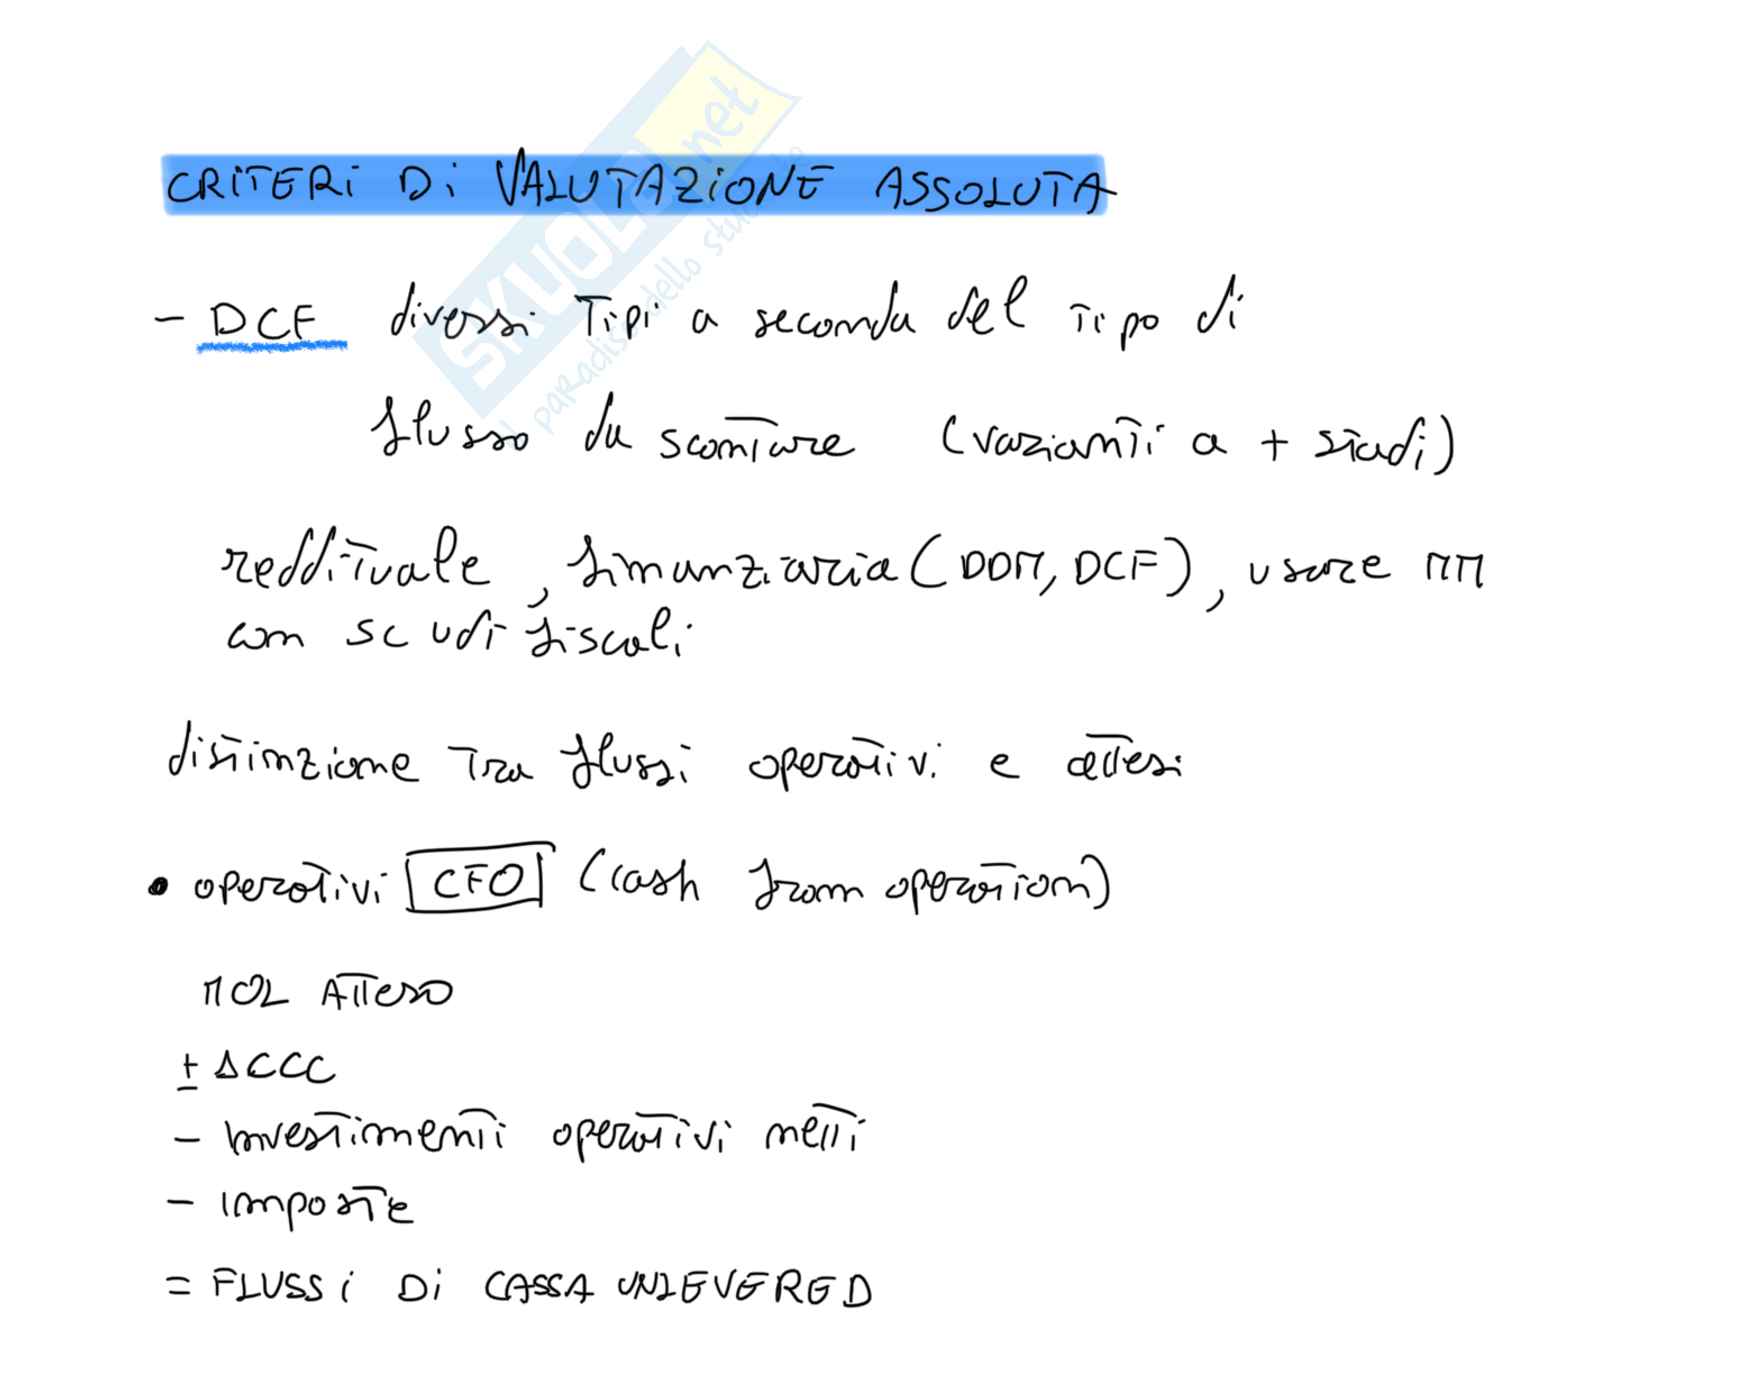 CRITERI DI VALUTAZIONE ASSOLUTA
- DCF diversi Tipi a seconda del tipo di
flusso da scontare (varianti a + stadi)
reddituale, finanziaria (DDM, DCF), usare MM
con scudi fiscali
distinzione tra flussi operativi e attesi
• operativi CFO (cash from operation)
MOL Atteso
± ΔCCC
- Investimenti operativi netti
- imposte
= FLUSSI DI CASSA UNLEVERED
SKUOLA.net
il paradiso dello studente